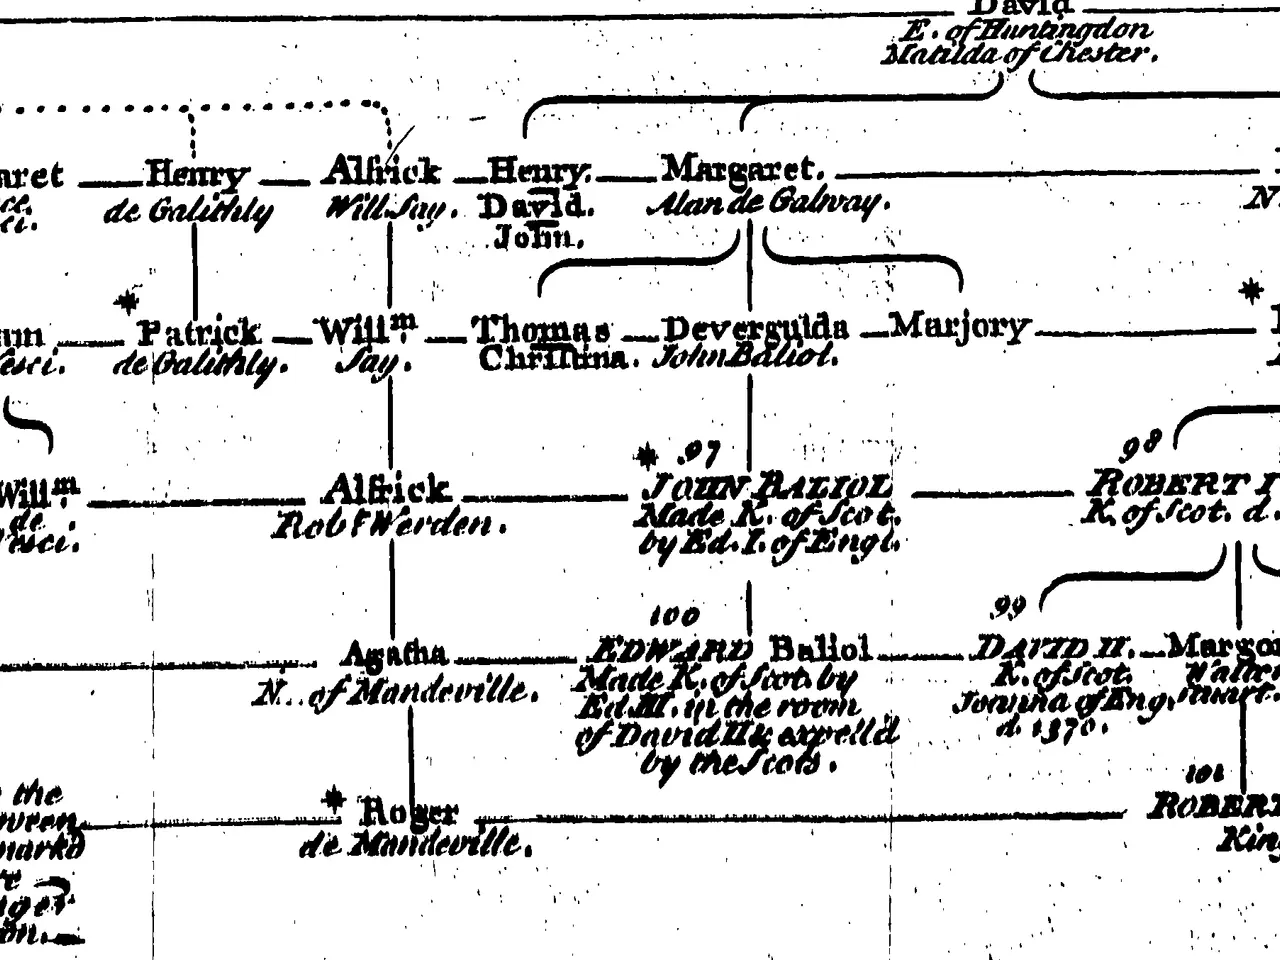 David
E. of Huntingdon
Matilda of Chester.
Henry
de Galithly
Alfrick
Will. Say.
Henry.
David.
John.
Margaret.
Alan de Galway.
Patrick
de Galithly.
Will.m
Say.
Thomas
Christina.
Deverguilda
John Baliol.
Marjory
Will.m
de
Alfrick
Rob.t Werden.
97
JOHN BALIOL
Made K. of Scot.
by Ed. I. of Engl.
98
ROBERT I
K. of Scot. d.
Agatha
N... of Mandeville.
100
EDWARD Baliol
Made K. of Scot. by
Ed. III. in the room
of David II & expell'd
by the Scots.
99
DAVID II.
K. of Scot.
Joanna of Eng.
d. 1370.
the
Roger
de Mandeville.
101
ROBERT